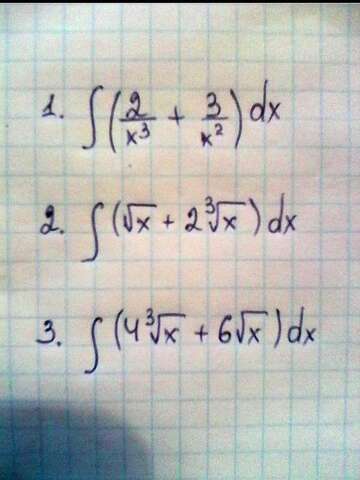 1. ∫(2/x³ + 3/x²)dx
2. ∫(√x + 2∛x)dx
3. ∫(4∛x + 6√x)dx